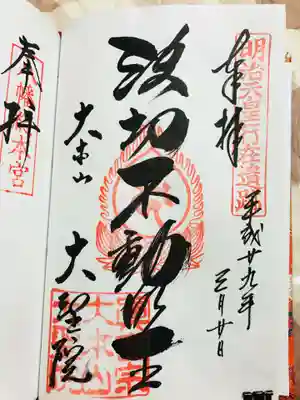 明治天皇行在遺跡
奉拝
平成廿九年
三月廿日
波切不動明王
大本山
大聖院
奉拝
八幡朝本宮